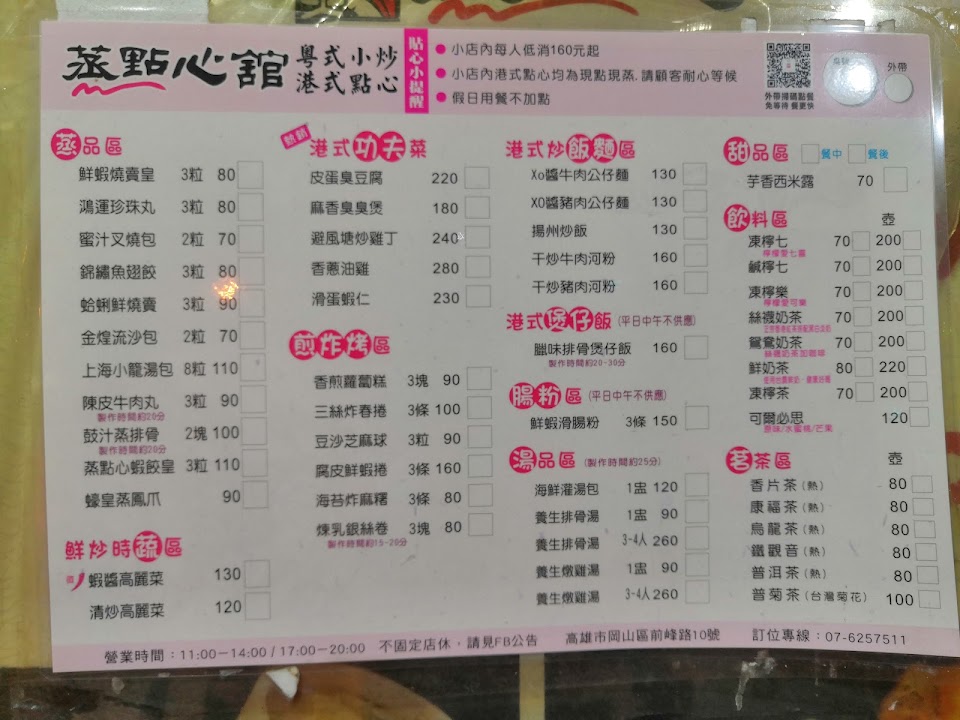 蒸點心館
粵式小炒
港式點心
貼心小提醒
● 小店內每人低消160元起
● 小店內港式點心均為現點現蒸,請顧客耐心等候
● 假日用餐不加點
外帶掃碼點餐
免等待 餐更快
外帶
蒸品區
鮮蝦燒賣皇 3粒 80
鴻運珍珠丸 3粒 80
蜜汁叉燒包 2粒 70
錦繡魚翅餃 3粒 80
蛤蜊鮮燒賣 3粒 90
金煌流沙包 2粒 70
上海小籠湯包 8粒 110
陳皮牛肉丸 3粒 90
製作時間約20分
鼓汁蒸排骨 2塊 100
製作時間約20分
蒸點心蝦餃皇 3粒 110
蠔皇蒸鳳爪 90
鮮炒時蔬區
蝦醬高麗菜 130
清炒高麗菜 120
熱銷
港式功夫菜
皮蛋臭豆腐 220
麻香臭臭煲 180
避風塘炒雞丁 240
香蔥油雞 280
滑蛋蝦仁 230
煎炸烤區
香煎蘿蔔糕 3塊 90
三絲炸春捲 3條 100
豆沙芝麻球 3粒 90
腐皮鮮蝦捲 3條 160
海苔炸麻糬 3條 80
煉乳銀絲卷 3塊 80
製作時間約15-20分
港式炒飯麵區
Xo醬牛肉公仔麵 130
XO醬豬肉公仔麵 130
揚州炒飯 130
干炒牛肉河粉 160
干炒豬肉河粉 160
港式煲仔飯 (平日中午不供應)
臘味排骨煲仔飯 160
製作時間約20-30分
腸粉區 (平日中午不供應)
鮮蝦滑腸粉 3條 150
湯品區 (製作時間約25分)
海鮮灌湯包 1盅 120
養生排骨湯 1盅 90
養生排骨湯 3-4人 260
養生燉雞湯 1盅 90
養生燉雞湯 3-4人 260
甜品區 餐中 餐後
芋香西米露 70
飲料區 壺
凍檸七 70 200
檸檬愛七喜
鹹檸七 70 200
凍檸樂 70 200
檸檬愛可樂
絲襪奶茶 70 200
鴛鴦奶茶 70 200
絲襪奶茶加咖啡
鮮奶茶 80 220
凍檸茶 70 200
可爾必思 120
原味/水蜜桃/芒果
茗茶區 壺
香片茶(熱) 80
康福茶(熱) 80
烏龍茶(熱) 80
鐵觀音(熱) 80
普洱茶(熱) 80
普菊茶(台灣菊花) 100
營業時間：11:00－14:00 / 17:00－20:00 不固定店休，請見FB公告 高雄市岡山區前峰路10號 訂位專線：07-6257511